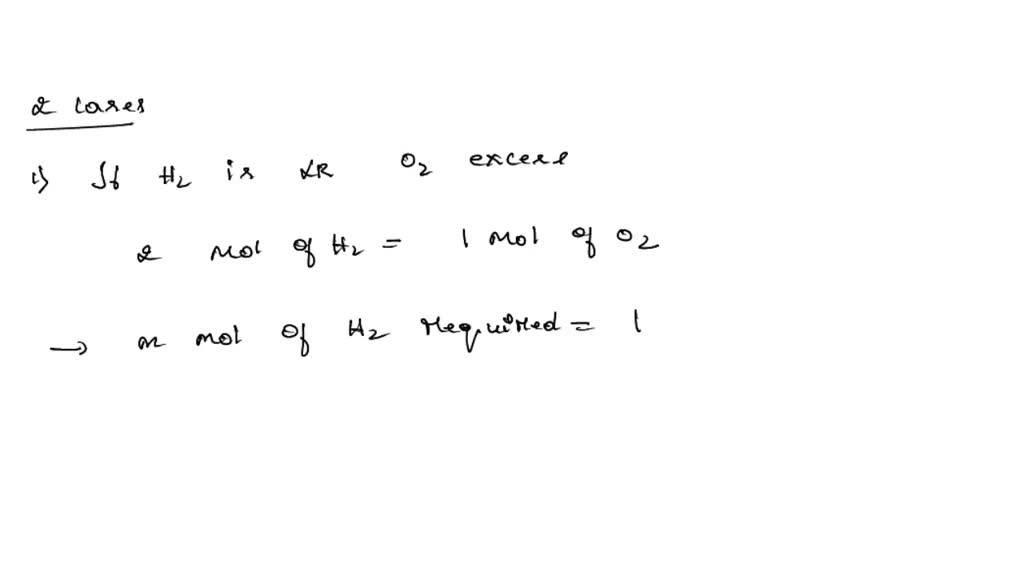 2 cases
1) If H2 is LR O2 excess
2 mol of H2 = 1 mol of O2
→ x mol of H2 required = 1